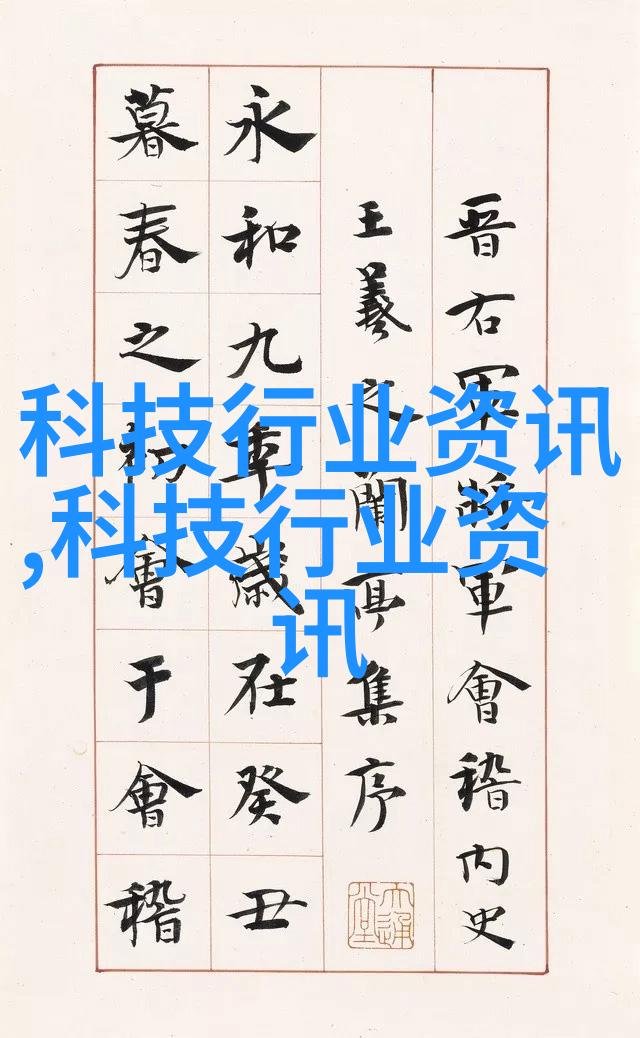 晋右軍將軍會稽内史
王羲之蘭亭集序
永和九年歲在癸丑
暮春之初會于會稽
科技行业资讯
,科技行业资
讯